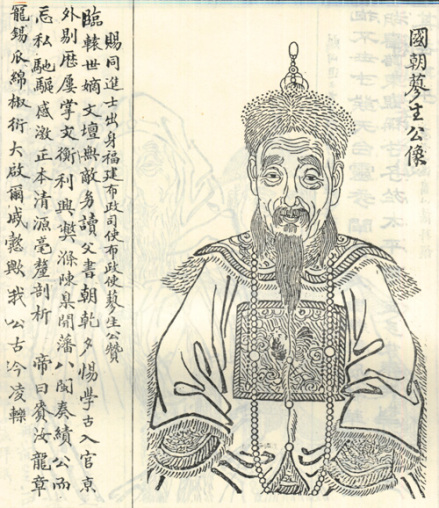 國朝蓼生公像
賜同進士出身福建布政司使布政使蓼生公贊
臨轅世嫡文壇無敵務讀父書朝乾夕惕學古入官京
外剔歷屢掌文衡利興弊滌陳臬開藩八閩奏績公而
忘私馳驅感激正本清源毫釐剖析 帝曰賚汝龍章
寵錫瓜綿椒衍大啟爾成懿歟我 公古今凌轢